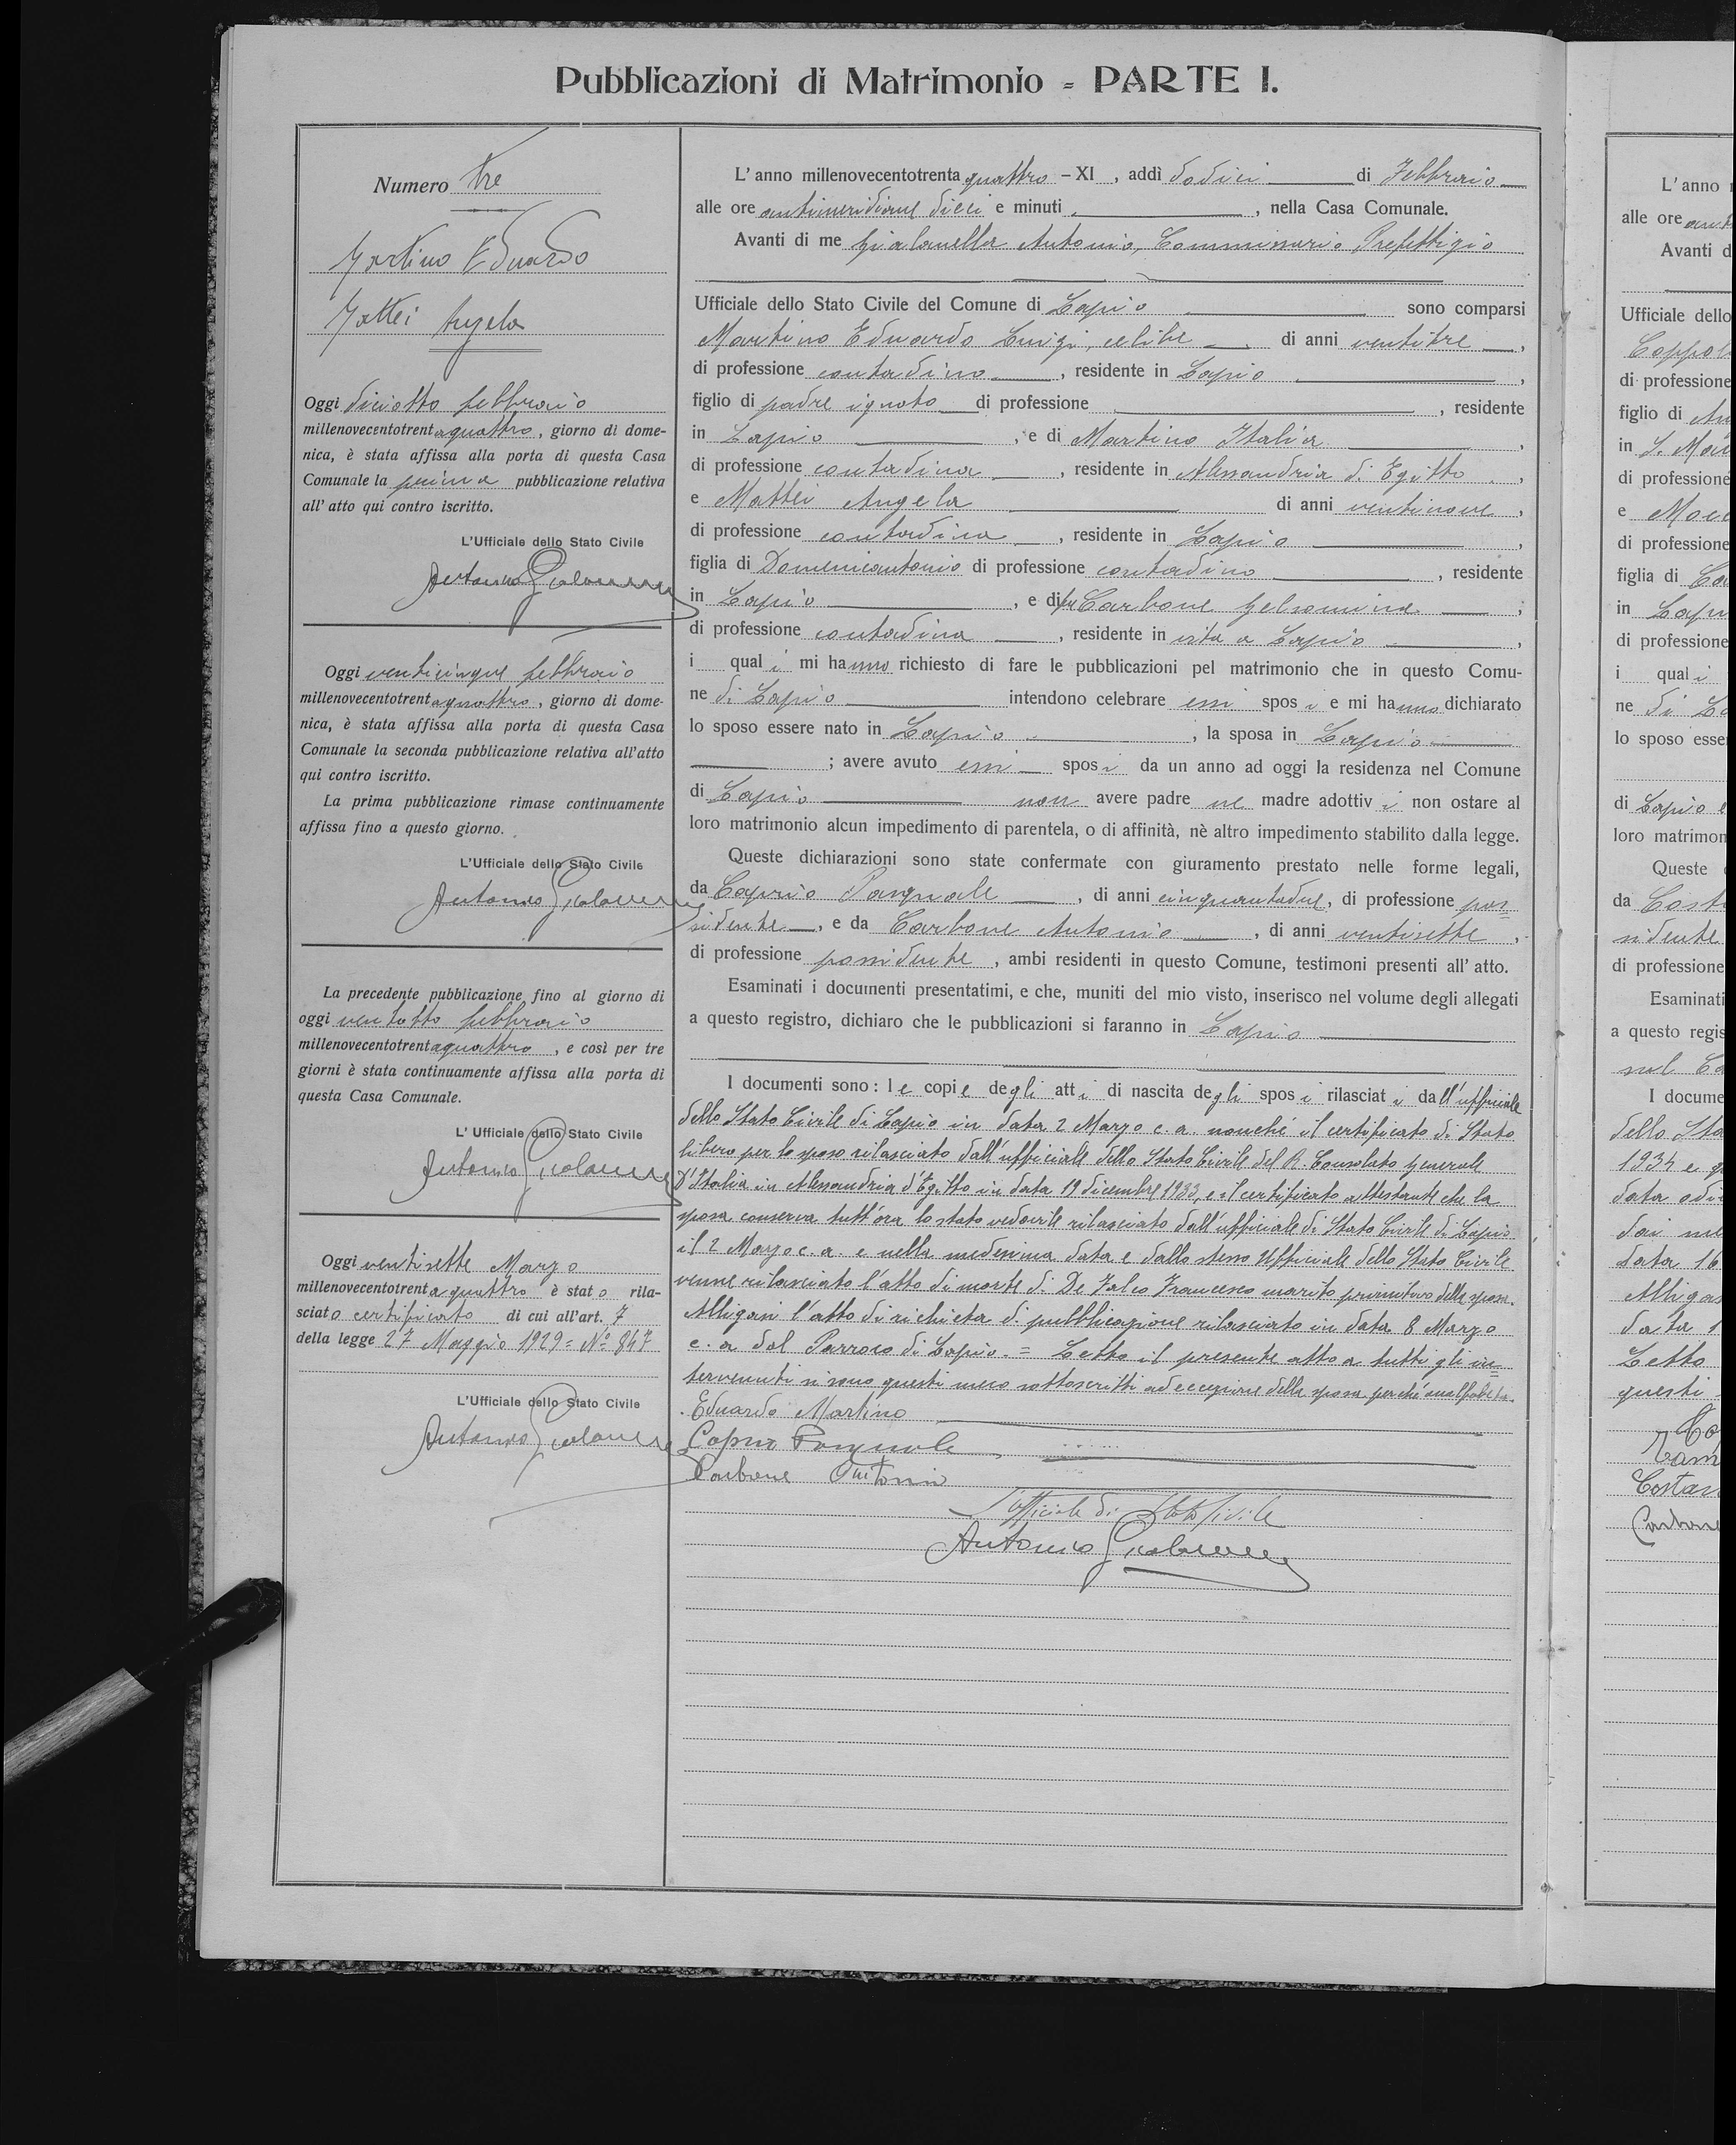 Pubblicazioni di Matrimonio = PARTE I.
Numero tre
Martino Eduardo
Mattei Angela
Oggi diciotto febbraio
millenovecentotrentaquattro, giorno di dome-
nica, è stata affissa alla porta di questa Casa
Comunale la prima pubblicazione relativa
all'atto qui contro iscritto.
L'Ufficiale dello Stato Civile
Antonio Gialanella
Oggi venticinque febbraio
millenovecentotrentaquattro, giorno di dome-
nica, è stata affissa alla porta di questa Casa
Comunale la seconda pubblicazione relativa all'atto
qui contro iscritto.
La prima pubblicazione rimase continuamente
affissa fino a questo giorno.
L'Ufficiale dello Stato Civile
Antonio Gialanella
La precedente pubblicazione fino al giorno di
oggi ventotto febbraio
millenovecentotrentaquattro, e così per tre
giorni è stata continuamente affissa alla porta di
questa Casa Comunale.
L'Ufficiale dello Stato Civile
Antonio Gialanella
Oggi ventisette Marzo
millenovecentotrentaquattro è stato rila-
sciato certificato di cui all'art. 7
della legge 27 Maggio 1929 = No 847
L'Ufficiale dello Stato Civile
Antonio Gialanella
L'anno millenovecentotrentaquattro - XI, addì dodici di Febbraio
alle ore antimeridiane dieci e minuti , nella Casa Comunale.
Avanti di me Gialanella Antonio, Commissario Prefettizio
Ufficiale dello Stato Civile del Comune di Lapio sono comparsi
Martino Eduardo Luigi, celibe di anni ventitre,
di professione contadino, residente in Lapio,
figlio di padre ignoto di professione , residente
in Lapio, e di Martino Italia,
di professione contadina, residente in Alessandria d'Egitto,
e Mattei Angela di anni ventinove,
di professione contadina, residente in Lapio,
figlia di Domenicantonio di professione contadino, residente
in Lapio, e di fu Carbone Gelsomina,
di professione contadina, residente in vita a Lapio,
i quali mi hanno richiesto di fare le pubblicazioni pel matrimonio che in questo Comu-
ne di Lapio intendono celebrare essi sposi e mi hanno dichiarato
lo sposo essere nato in Lapio, la sposa in Lapio
; avere avuto essi sposi da un anno ad oggi la residenza nel Comune
di Lapio non avere padre ne madre adottivi non ostare al
loro matrimonio alcun impedimento di parentela, o di affinità, nè altro impedimento stabilito dalla legge.
Queste dichiarazioni sono state confermate con giuramento prestato nelle forme legali,
da Caprio Pasquale, di anni cinquantadue, di professione pos=
sidente, e da Carbone Antonio, di anni ventisette,
di professione possidente, ambi residenti in questo Comune, testimoni presenti all'atto.
Esaminati i documenti presentatimi, e che, muniti del mio visto, inserisco nel volume degli allegati
a questo registro, dichiaro che le pubblicazioni si faranno in Lapio
I documenti sono: le copie degli atti di nascita degli sposi rilasciati dall'ufficiale
dello Stato Civile di Lapio in data 2 Marzo c.a. nonché il certificato di Stato
libero per lo sposo rilasciato dall'ufficiale dello Stato Civile del R. Consolato Generale
d'Italia in Alessandria d'Egitto in data 19 dicembre 1933, e il certificato attestante che la
sposa conserva tutt'ora lo stato vedovile rilasciato dall'ufficiale di Stato Civile di Lapio
il 2 Marzo c.a. e nella medesima data e dallo stesso Ufficiale dello Stato Civile
venne rilasciato l'atto di morte di De Falco Francesco marito primitivo della sposa.
Alligasi l'atto di richiesta di pubblicazione rilasciato in data 8 Marzo
c.a dal Parroco di Lapio. = Letto il presente atto a tutti gli in=
tervenuti si sono questi meco sottoscritti ad eccezione della sposa perché analfabeta.
Eduardo Martino
Caprio Pasquale
Carbone Antonio
L'ufficiale di Stato Civile
Antonio Gialanella
L'anno
alle ore
Avanti d
Ufficiale dello
di professione
figlio di
in S.
di professione
e
di professione
figlia di
in Lapio
di professione
i quali
ne di
lo sposo esse
di Lapio e
loro matrimon
Queste
da
sidente
di professione
Esaminati
a questo regis
I docume
dello Sta
1934 e
data
data 16
Alligas
data
Letto
questi